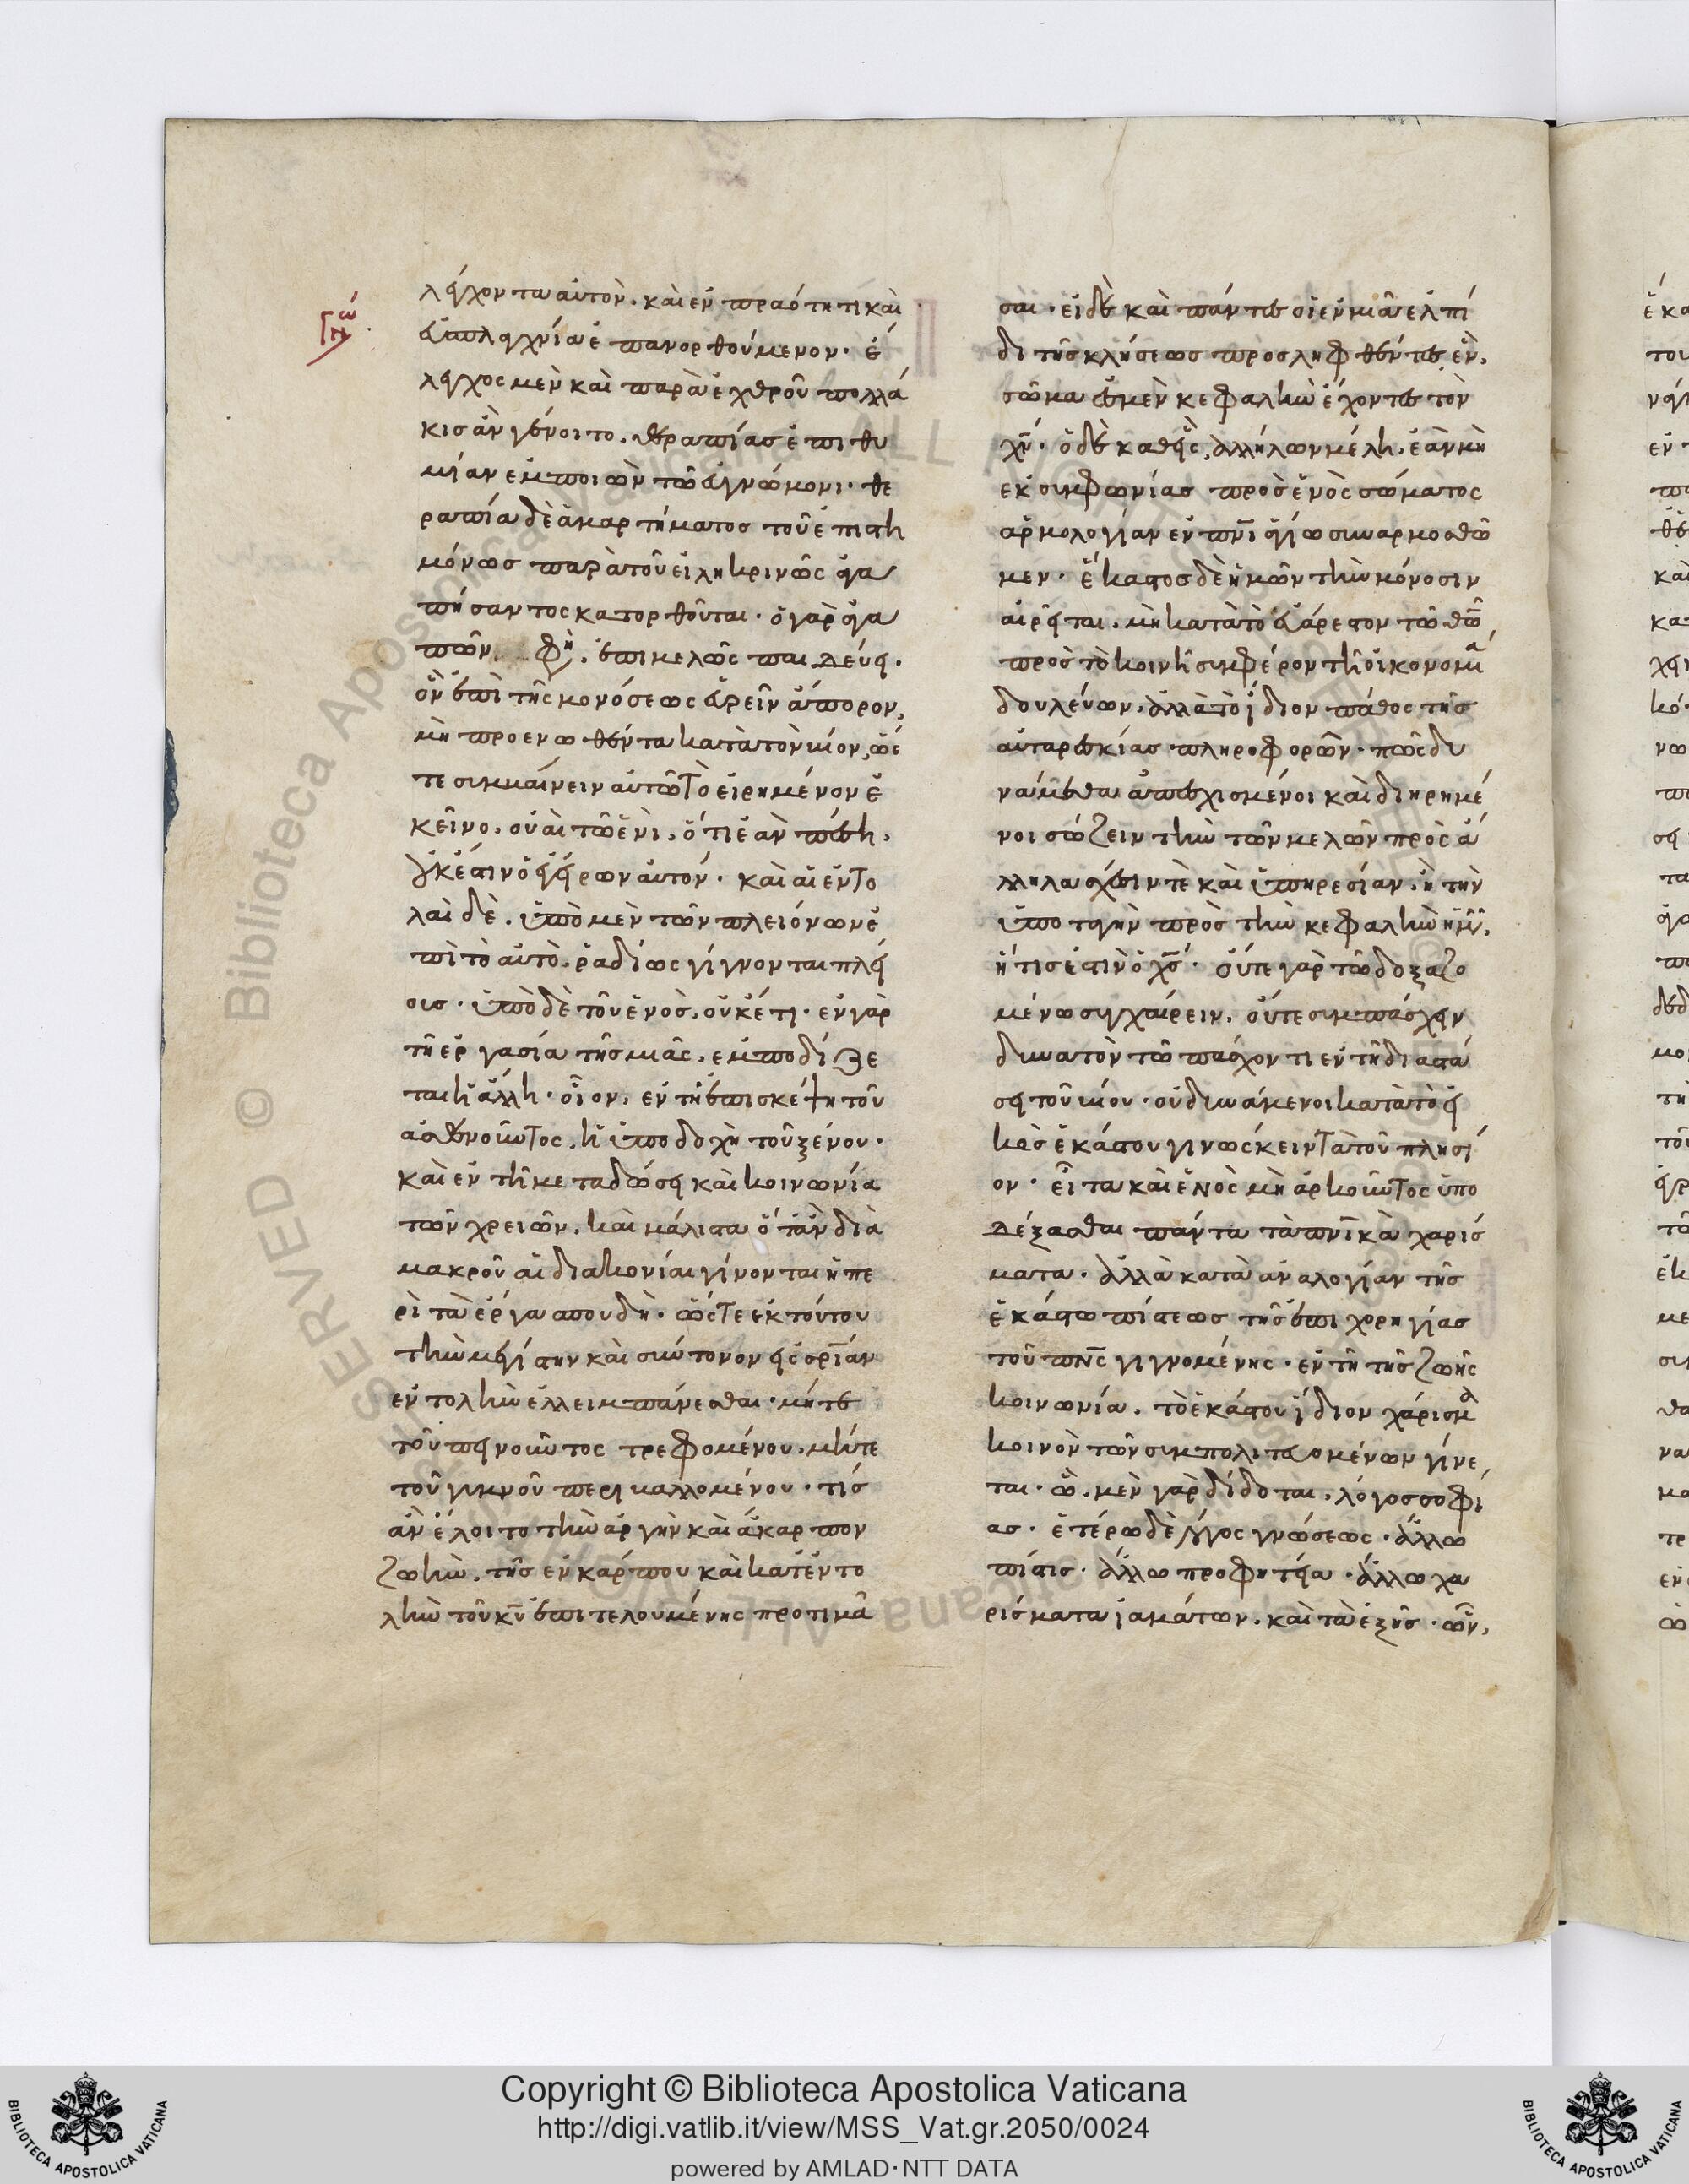 Γνώ
λέγχοντα αὐτὸν. καὶ ἐν πραότητι καὶ
εὐσπλαγχνία ἐπανορθούμενον. ἔ
λεγχος μὲν καὶ παρὰ ἐχθροῦ πολλά
κις ἂν γένοιτο. θεραπείας ἐπιθυ
μίαν ἐμποιῶν τῶ εὐγνώμονι. θε
ραπεία δὲ ἁμαρτήματος τοῦ ἐπιστη
μόνως παρὰ τοῦ εἰληκρινῶς ἀγα
πήσαντος κατορθοῦται. ὁ γὰρ ἀγα
πῶν φη. ἐπιμελῶς παιδεύει.
ὃν ἐπὶ τῆς μονώσεως εὑρεῖν ἄπορον,
μὴ προενωθέντα κατὰ τὸν βίον, ὥς
τε συμβαίνειν αὐτῶ τὸ εἰρημένον ἐ
κεῖνο. οὐαὶ τῶ ἑνὶ, ὅτι ἐὰν πέση,
οὐκ ἔστιν ὁ ἐγείρων αὐτόν. καὶ αἱ ἐντο
λαὶ δὲ. ὑπὸ μὲν τῶν πλειόνων ἐ
πὶ τὸ αὐτὸ, ῥαδίως γίγνονται πλεί
οις. ὑπὸ δὲ τοῦ ἑνὸς, οὐκέτι. ἐν γὰρ
τῇ ἐργασία τῆς μιᾶς, ἐμποδίζε
ται ἡ ἄλλη. οἷον, ἐν τῇ ἐπισκέψη τοῦ
ἀσθενοῦντος, ἡ ὑποδοχὴ τοῦ ξένου.
καὶ ἐν τῇ μεταδώσει καὶ κοινωνία
τῶν χρειῶν. καὶ μάλιστα ὅταν διὰ
μακροῦ αἱ διακονίαι γίνονται ἡ πε
ρὶ τὰ ἔργα σπουδὴ. ὥστε ἐκ τούτου
τὴν μεγίστην καὶ σύντονον εἰς σρίαν
ἐντολὴν ἐλλειμπάνεσθαι. μήτε
τοῦ πεινοῦντος τρεφομένου, μήτε
τοῦ γυμνοῦ περιβαλλομένου. τίς
ἂν ἕλοιτο τὴν ἀργὴν καὶ ἄκαρπον
ζωὴν, τῆς ἐνκάρπου καὶ κατ' ἐντο
λὴν τοῦ κυ ἐπιτελουμένης προτιμᾶ
σαι. εἰ δὲ καὶ πάντες οἱ ἐν μιᾶ ἐλπί
δι τῆς κλήσεως προσληφθέντες ἓν
σῶμα ἐσμὲν κεφαλὴν ἔχοντες τὸν
χν. ὁ δὲ καθεῖς, ἀλλήλων μέλη. ἐὰν μὴ
ἐκ συμφωνίας πρὸς ἑνὸς σώματος
ἁρμολογίαν ἐν πνι ἁγίω συναρμοσθῶ
μεν. ἕκαστος δὲ ἡμῶν τὴν μόνοσιν
αἱρεῖται. μὴ κατὰ τὸ εὐάρεστον τῶ θω
πρὸς τὸ κοινῇ συμφέρον τῇ οἰκονομία
δουλεύων, ἀλλὰ τὸ ἴδιον πάθος τῆς
αὐταρεσκίας πληροφορῶν. πῶς δυ
νάμεθα ἀπεσχισμένοι καὶ διηρημέ
νοι σώζειν τὴν τῶν μελῶν πρὸς ἄ
λληλα σχέσιν τὲ καὶ ὑπηρεσίαν. ἢ τὴν
ὑποταγὴν πρὸς τὴν κεφαλὴν ἡμῶν.
ἥτις ἐστὶν ὁ χς. οὔτε γὰρ τῶ δοξαζο
μένω συγχαίρειν, οὔτε συμπάσχειν
δυνατὸν τῶ πάσχοντι ἐν τῇ διαστά
σει τοῦ βίου. οὐ δυνάμενοι κατὰ τὸ εἰ
κὸς ἑκάστου γινώσκειν τὰ τοῦ πλησί
ον. εἶτα καὶ ἑνὸς μὴ ἀρκοῦντος ὑπο
δέξασθαι πάντα τὰ πνικὰ χαρίσ
ματα. ἀλλὰ κατὰ ἀναλογίαν τῆς
ἑκάστω πίστεως τῆς ἐπιχορηγίας
τοῦ πνς γιγνομένης. ἐν τῇ τῆς ζωῆς
κοινωνία. τὸ ἑκάστου ἴδιον χάρισμα
κοινὸν τῶν συμπολιτευομένων γίνε
ται. ὧ. μὲν γὰρ δίδοται, λόγος σοφί
ας. ἑτέρω δὲ λόγος γνώσεως. ἄλλω
πίστις. ἄλλω προφητεία. ἄλλω χα
ρίσματα ἰαμάτων. καὶ τὰ ἑξῆς. ὧν,
Copyright © Biblioteca Apostolica Vaticana
http://digi.vatlib.it/view/MSS_Vat.gr.2050/0024
powered by AMLAD·NTT DATA